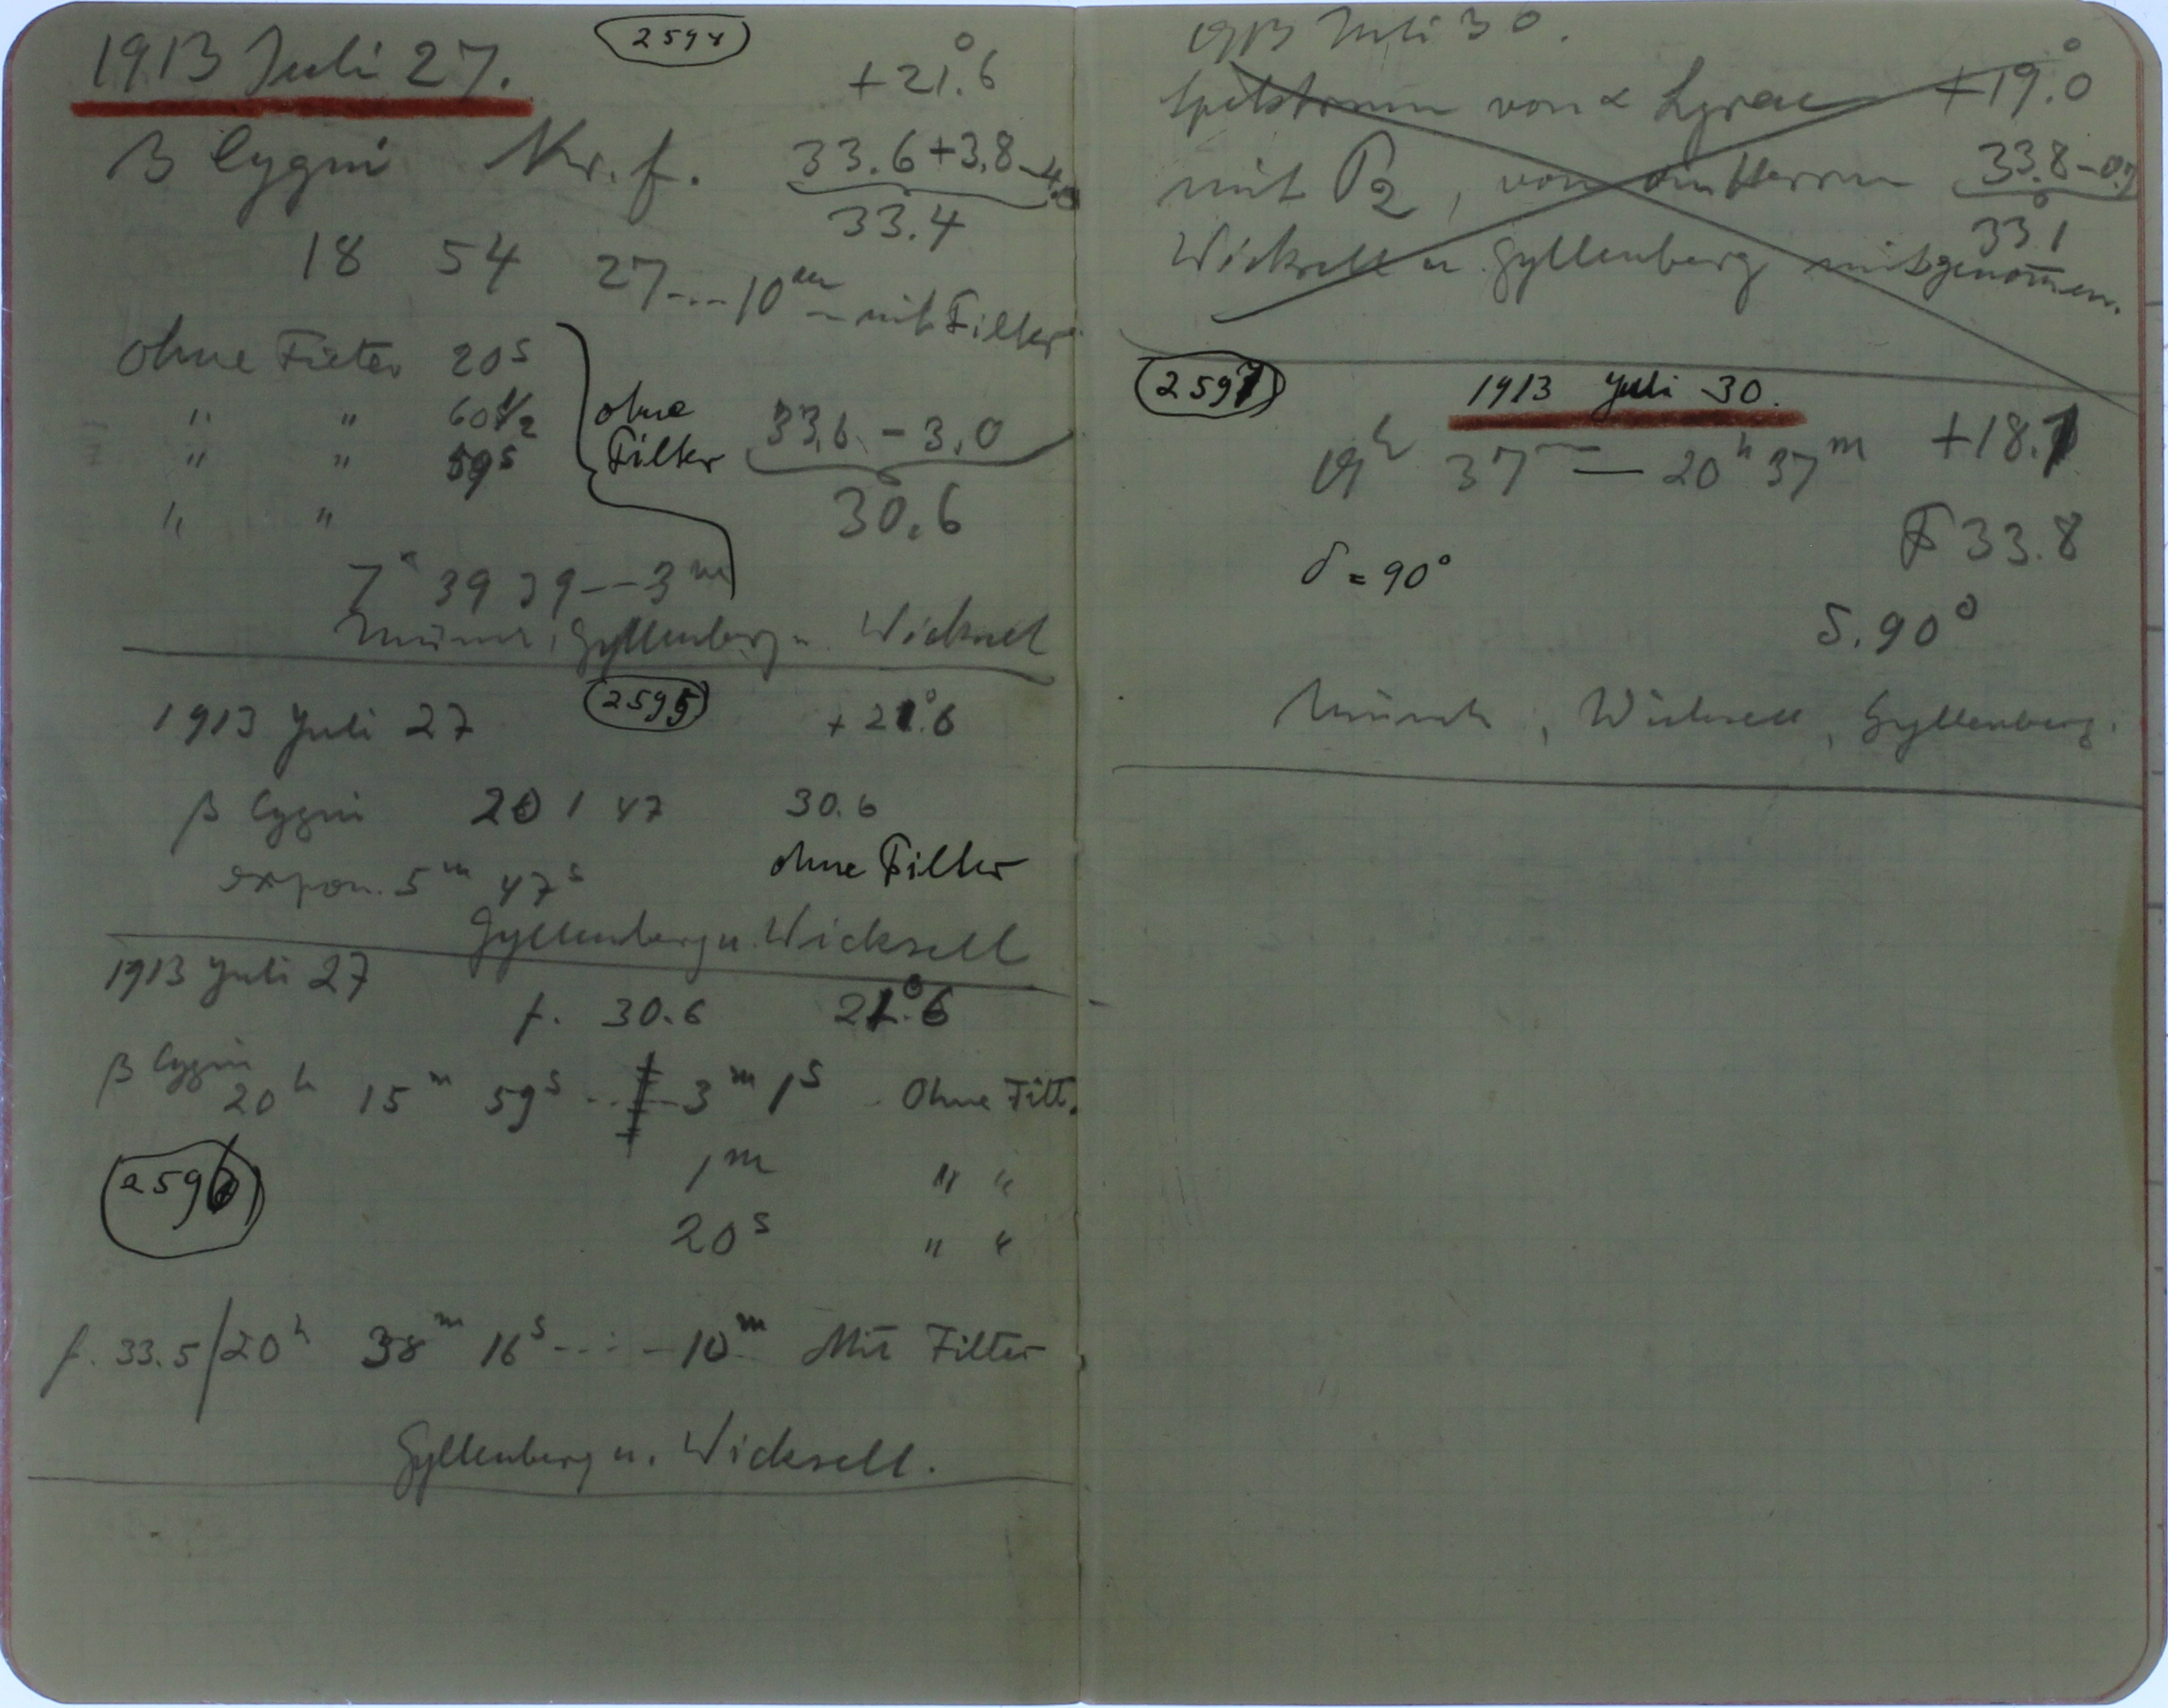 1913 Juli 27. 2594 +21.°6
β Cygni Nr. f. 33.6+3.8-4.0
33.4
18 54 27---10m - mit Filter
ohne Filter 20s
" " 60s/2 ohne 33.6 - 3.0
" " 59s Filter
" " 30.6
7h 39 29--3m
Münch, Gyllenberg u. Wicksell
1913 Juli 27 2595 +21.°6
β Cygni 20 1 47 30.6
expon. 5m 47s ohne Filter
Gyllenberg u. Wicksell
1913 Juli 27
f. 30.6 21.°6
β Cygni
20h 15m 59s ---3m 1s Ohne Filt.
2596 1m " "
20s " "
f. 33.5/20h 38m 16s ---10m Mit Filter
Gyllenberg u. Wicksell.
1913 Juli 30.
Spektrum von α Lyrae +19.°0
mit P2, von Herrn 33.8-0.7
33.1
Wicksell u. Gyllenberg mitgenom̄en.
2597 1913 Juli 30.
19h 37m — 20h 37m +18.7
F 33.8
δ = 90°
S. 90°
Münch, Wicksell, Gyllenberg.